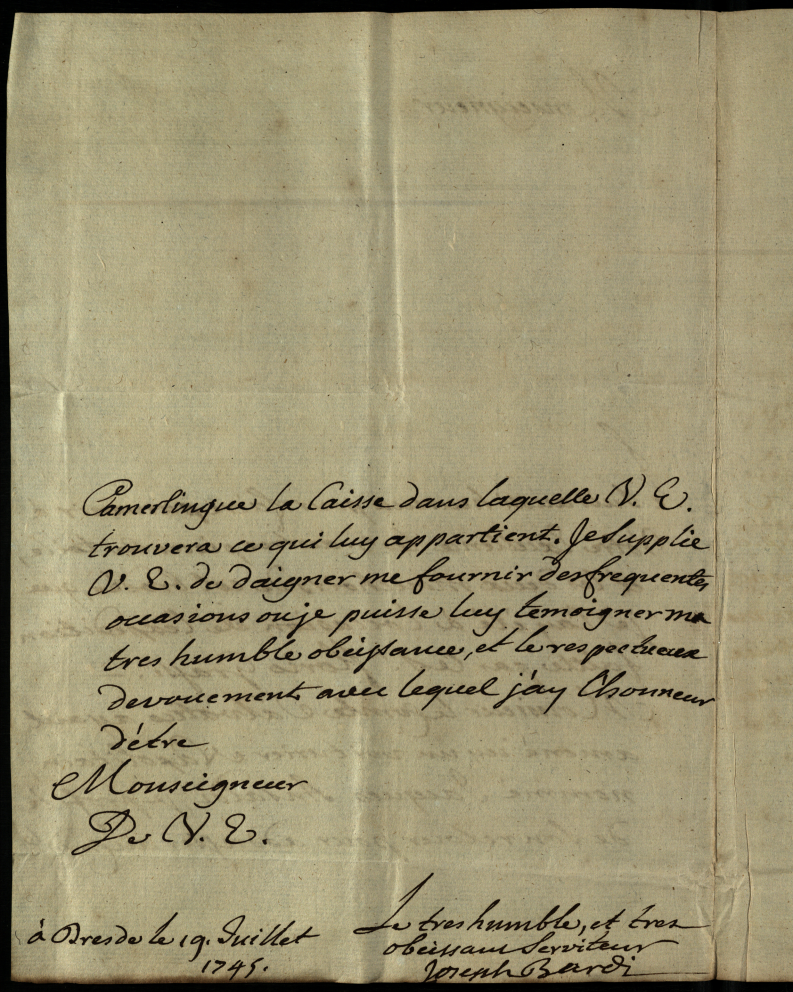 Camerlingue la Caisse dans laquelle V. E.
trouvera ce qui luy appartient. Je supplie
V. E. de daigner me fournir des frequentes
occasions ou je puisse luy temoigner ma
tres humble obeissance, et le respectueux
devouement avec lequel j'ay l'honneur
d'étre
Monseigneur
De V. E.
à Dresde le 19. Juillet
1745.
Le tres humble, et tres
obeissant Serviteur
Joseph Bardi